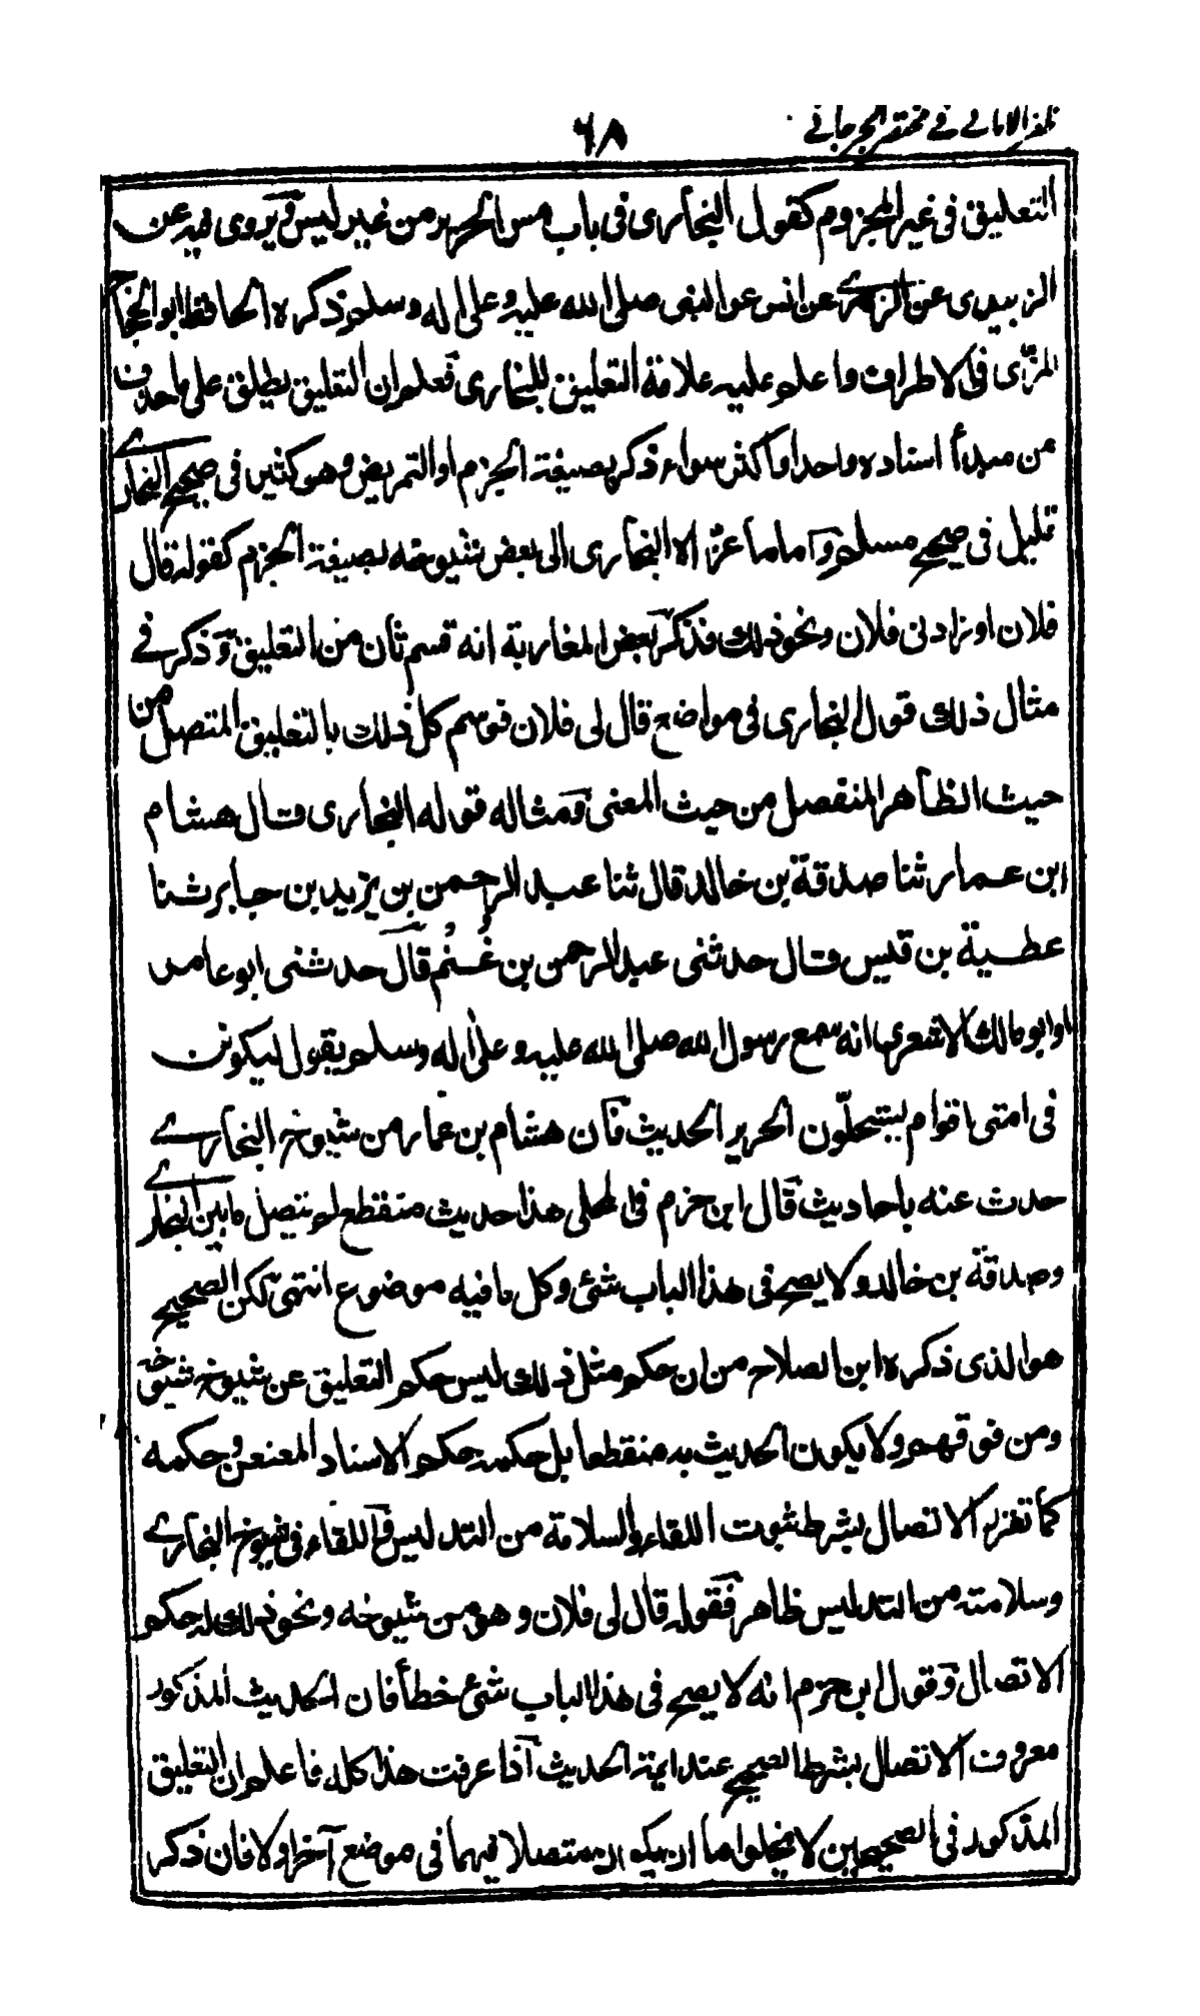 ظفر الامانى فى مختصر الجرجانى
٦٨
التعليق فى غير المجزوم كقول البخارى فى باب مس الحرير من غير لبس ويروى فيه عن
الزبيدى عن الزهرى عن انس عن النبى صلى الله عليه وعلى اله وسلم ذكره الحافظ ابو الحجاج
المزّى فى الاطراف واعلم عليه علامة التعليق للبخارى فعلم ان التعليق يطلق على ما حذف
من مبدأ اسناده واحد او اكثر سواء ذكر بصيغة الجزم او التمريض وهو كثير فى صحيح البخارى
قليل فى صحيح مسلم واما ما عزاه البخارى الى بعض شيوخه بصيغة الجزم كقوله قال
فلان او زادنى فلان ونحو ذلك فذكر بعض المغاربة انه قسم ثان من التعليق وذكر فى
مثال ذلك قول البخارى فى مواضع قال لى فلان فوسم كل ذلك بالتعليق المتصل من
حيث الظاهر المنفصل من حيث المعنى ومثاله قوله البخارى وقال هشام
ابن عمار ثنا صدقة بن خالد قال ثنا عبد الرحمن بن يزيد بن جابر ثنا
عطية بن قيس وقال حدثنى عبد الرحمن بن غُنُم قال حدثنى ابو عامر
او ابو مالك الاشعرى انه سمع رسول الله صلى الله عليه وعلى اله وسلم يقول ليكونن
فى امتى اقوام يستحلّون الحرير الحديث فان هشام بن عمار من شيوخ البخارى
حدث عنه باحاديث قال ابن حزم فى المحلى هذا حديث منقطع لم يتصل ما بين البخارى
وصدقة بن خالد ولا يصح فى هذا الباب شئ وكل ما فيه موضوع انتهى لكن الصحيح
هو الذى ذكره ابن الصلاح من ان حكم مثل ذلك ليس حكم التعليق عن شيوخ شيوخه
ومن فوقهم ولا يكون الحديث به منقطعا بل حكمه حكم الاسناد المعنعن وحكمه
كما تقرر الاتصال بشرط ثبوت اللقاء والسلامة من التدليس واللقاء فى شيوخ البخارى
وسلامته من التدليس ظاهر فقوله قال لى فلان وهو من شيوخه ونحو ذلك له حكم
الاتصال وقول ابن حزم انه لا يصح فى هذا الباب شئ خطأ فان الحديث المذكور
معروف الاتصال بشرط الصحيح عند ايمة الحديث اذا عرفت هذا كله فاعلم ان التعليق
المذكور فى الصحيحين لا يخلو اما ان يكون متصلا فيهما فى موضع آخر اولا فان ذكر